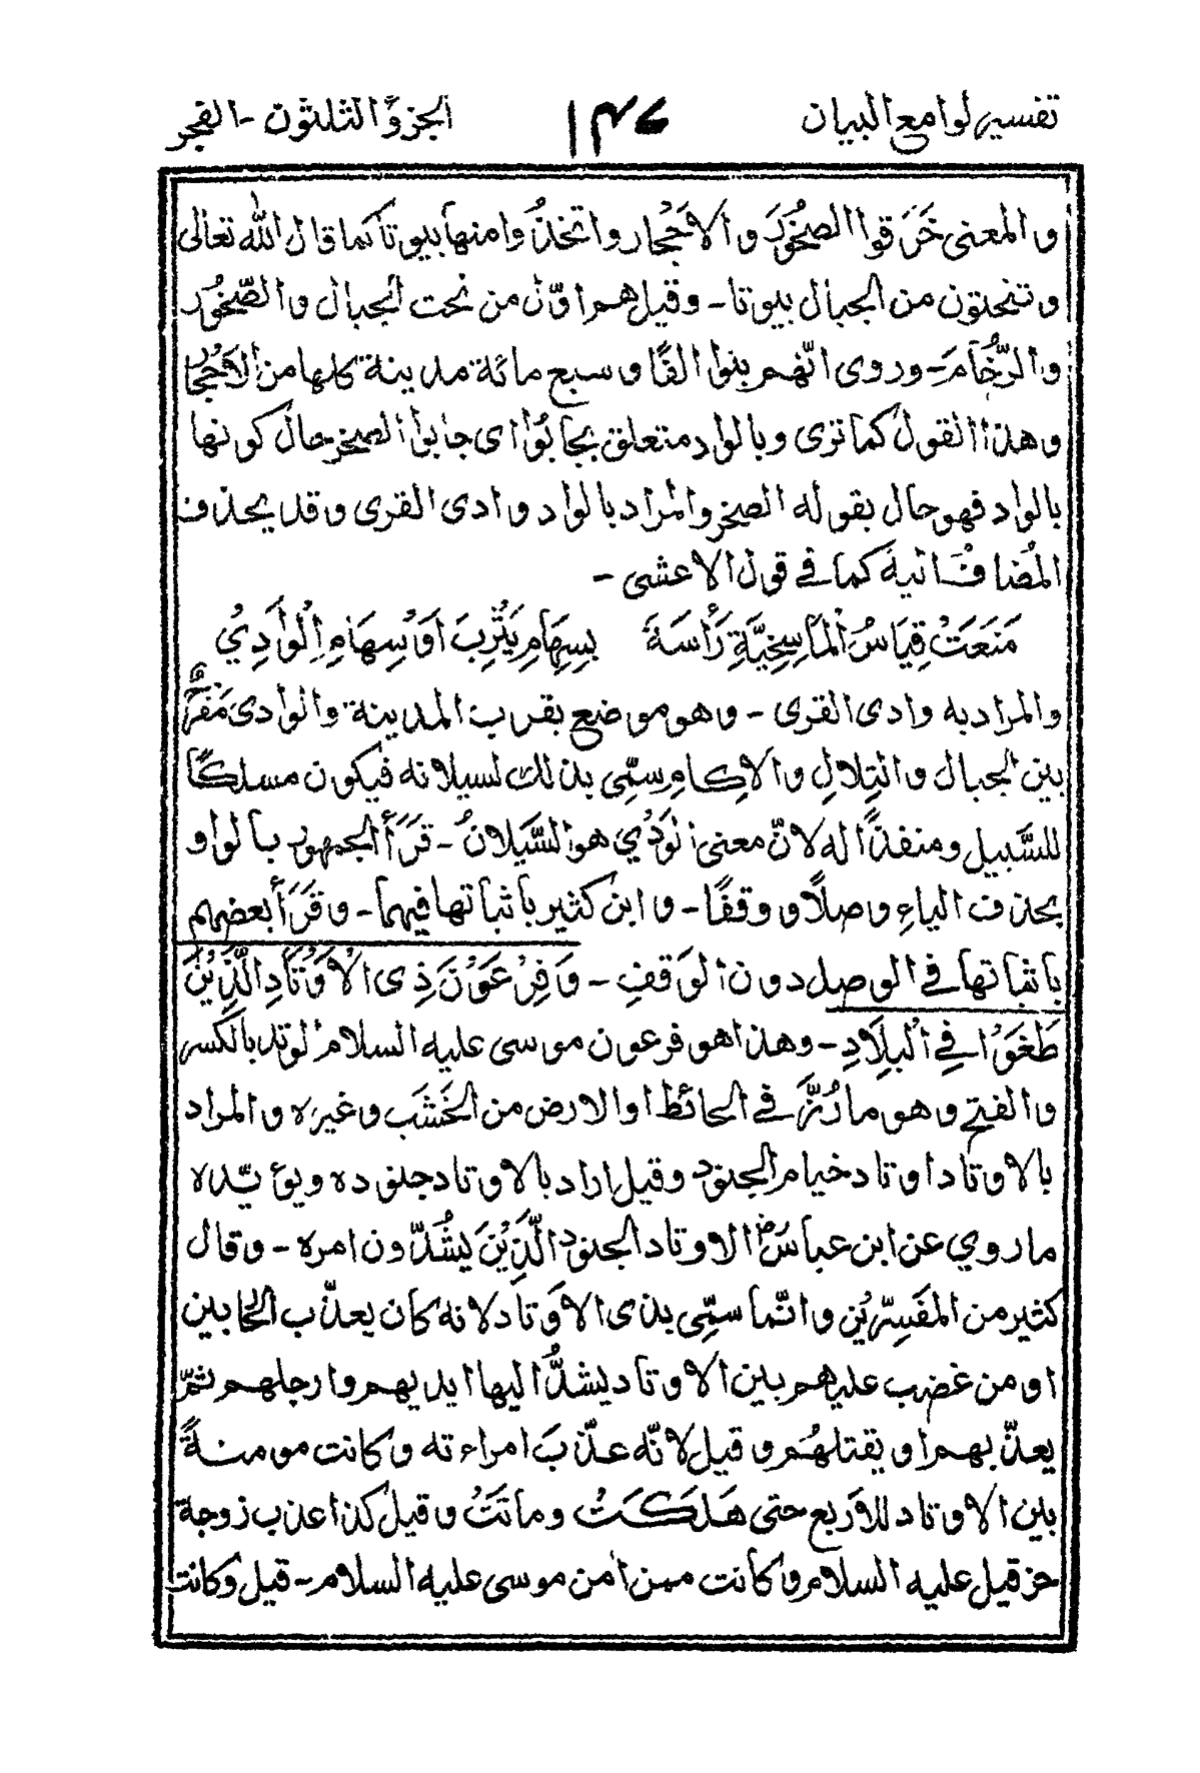 تفسير لوامع البيان ١٣٤٧ الجزؤ الثلثون - الفجر
والمعنى خَرَقوا الصخُوْرَ والاحْجار واتخذُوا منها بيوتا كما قال الله تعالى
وتنحتون من الجبال بيوتا - وقيل هم اوّل من نحت الجبال والصّخُوْرَ
والرُّخَامَ - وروى انّهم بنوا الفًا وسبع مائة مدينة كلها من الاحْجَار
وهذا القول كما ترى وبالواد متعلق بجابُوْا اى جابوا الصخر حال كونها
بالواد فهو حال بقوله الصخر والمراد بالواد وادى القرى وقد يحذف
المُضاف اليه كما فے قول الاعشى -
مَنَعَتْ قِيَاسُ الْمَاسِخِيَّةِ رَأْسَهٗ بِسِهَامِ يَثْرِبَ اَوْ سِهَامِ الْوَادِيْ
والمراد به وادى القرى - وهو موضع بقرب المدينة والوادى مَنْفَرجٌ
بين الجبال والتِلالِ والاِكامِ سمّى بذلك لسيلانه فيكون مسلكًا
للسَّبيل ومنفذًا له لانّ معنى الوَدْي هو السَّيلانُ - قَرَأَ الجمهور بالواو
بحذف الياءِ وصلًا ووقفًا - وابن كثير باثباتها فيهما - وقَرَأ بعضهم
باثباتها فے الوصل دون الوَقفِ - وَفِرْعَوْنَ ذِى الْاَوْتَادِ الَّذِيْنَ
طَغَوْا فِے الْبِلَادِ - وهذا هو فرعون موسى عليه السلام الوتد بالكسر
والفتح وهو ما رُزَّ فے الحائط او الارض من الخَشَب وغيره والمراد
بالاوتاد اوتاد خيام الجنود وقيل اراد بالاوتاد جنوده ويؤيّده
ما روي عن ابن عباسؓ الاوتاد الجنود الَّذِيْنَ يَشُدّون امره - وقال
كثير من المفَسِّرِيْن وانّما سمّى بذى الاوْتاد لانه كان يعذّب الخابين
او من غضب عليهم بين الاوتاد يشدُّ اليها ايديهم وارجلهم ثمّ
يعذّبهم او يقتلهُم وقيل لانّه عذّبَ امراءته وكانت مومنةً
بين الاوتاد الاَربع حتى هَلَكَتْ وماتَتْ وقيل كذا عذب زوجة
حزقيل عليه السلام وكانت ممن اٰمن موسى عليه السلام - قيل وكانت